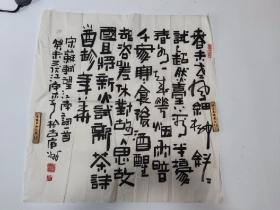 春未老風細柳斜斜
試上超然臺上看半壕
春水一城花煙雨暗
千家寒食後酒醒
却咨嗟休對故人思故
國且將新火試新茶詩
酒趁年華
宋蘇軾望江南詞一首